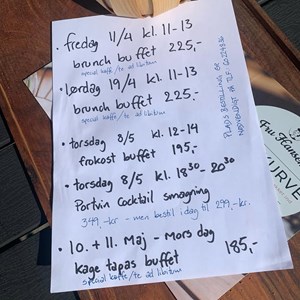 • fredag 11/4 kl. 11-13
brunch buffet 225,-
special kaffe/te ad libitum
• Lørdag 19/4 kl. 11-13
brunch buffet 225.-
special kaffe/te ad libitum
• torsdag 8/5 kl. 12-14
frokost buffet 195,-
• torsdag 8/5 kl. 18³⁰ - 20³⁰
Portvin Cocktail smagning
349,-kr - men bestil i dag til 299,-kr.
• 10. + 11. Maj - Mors dag
Kage tapas buffet 185,-
special kaffe/te ad libitum
PLADS BESTILLING ER
NØDVENDIGT PÅ TLF.
Fru Hansen
KURVE